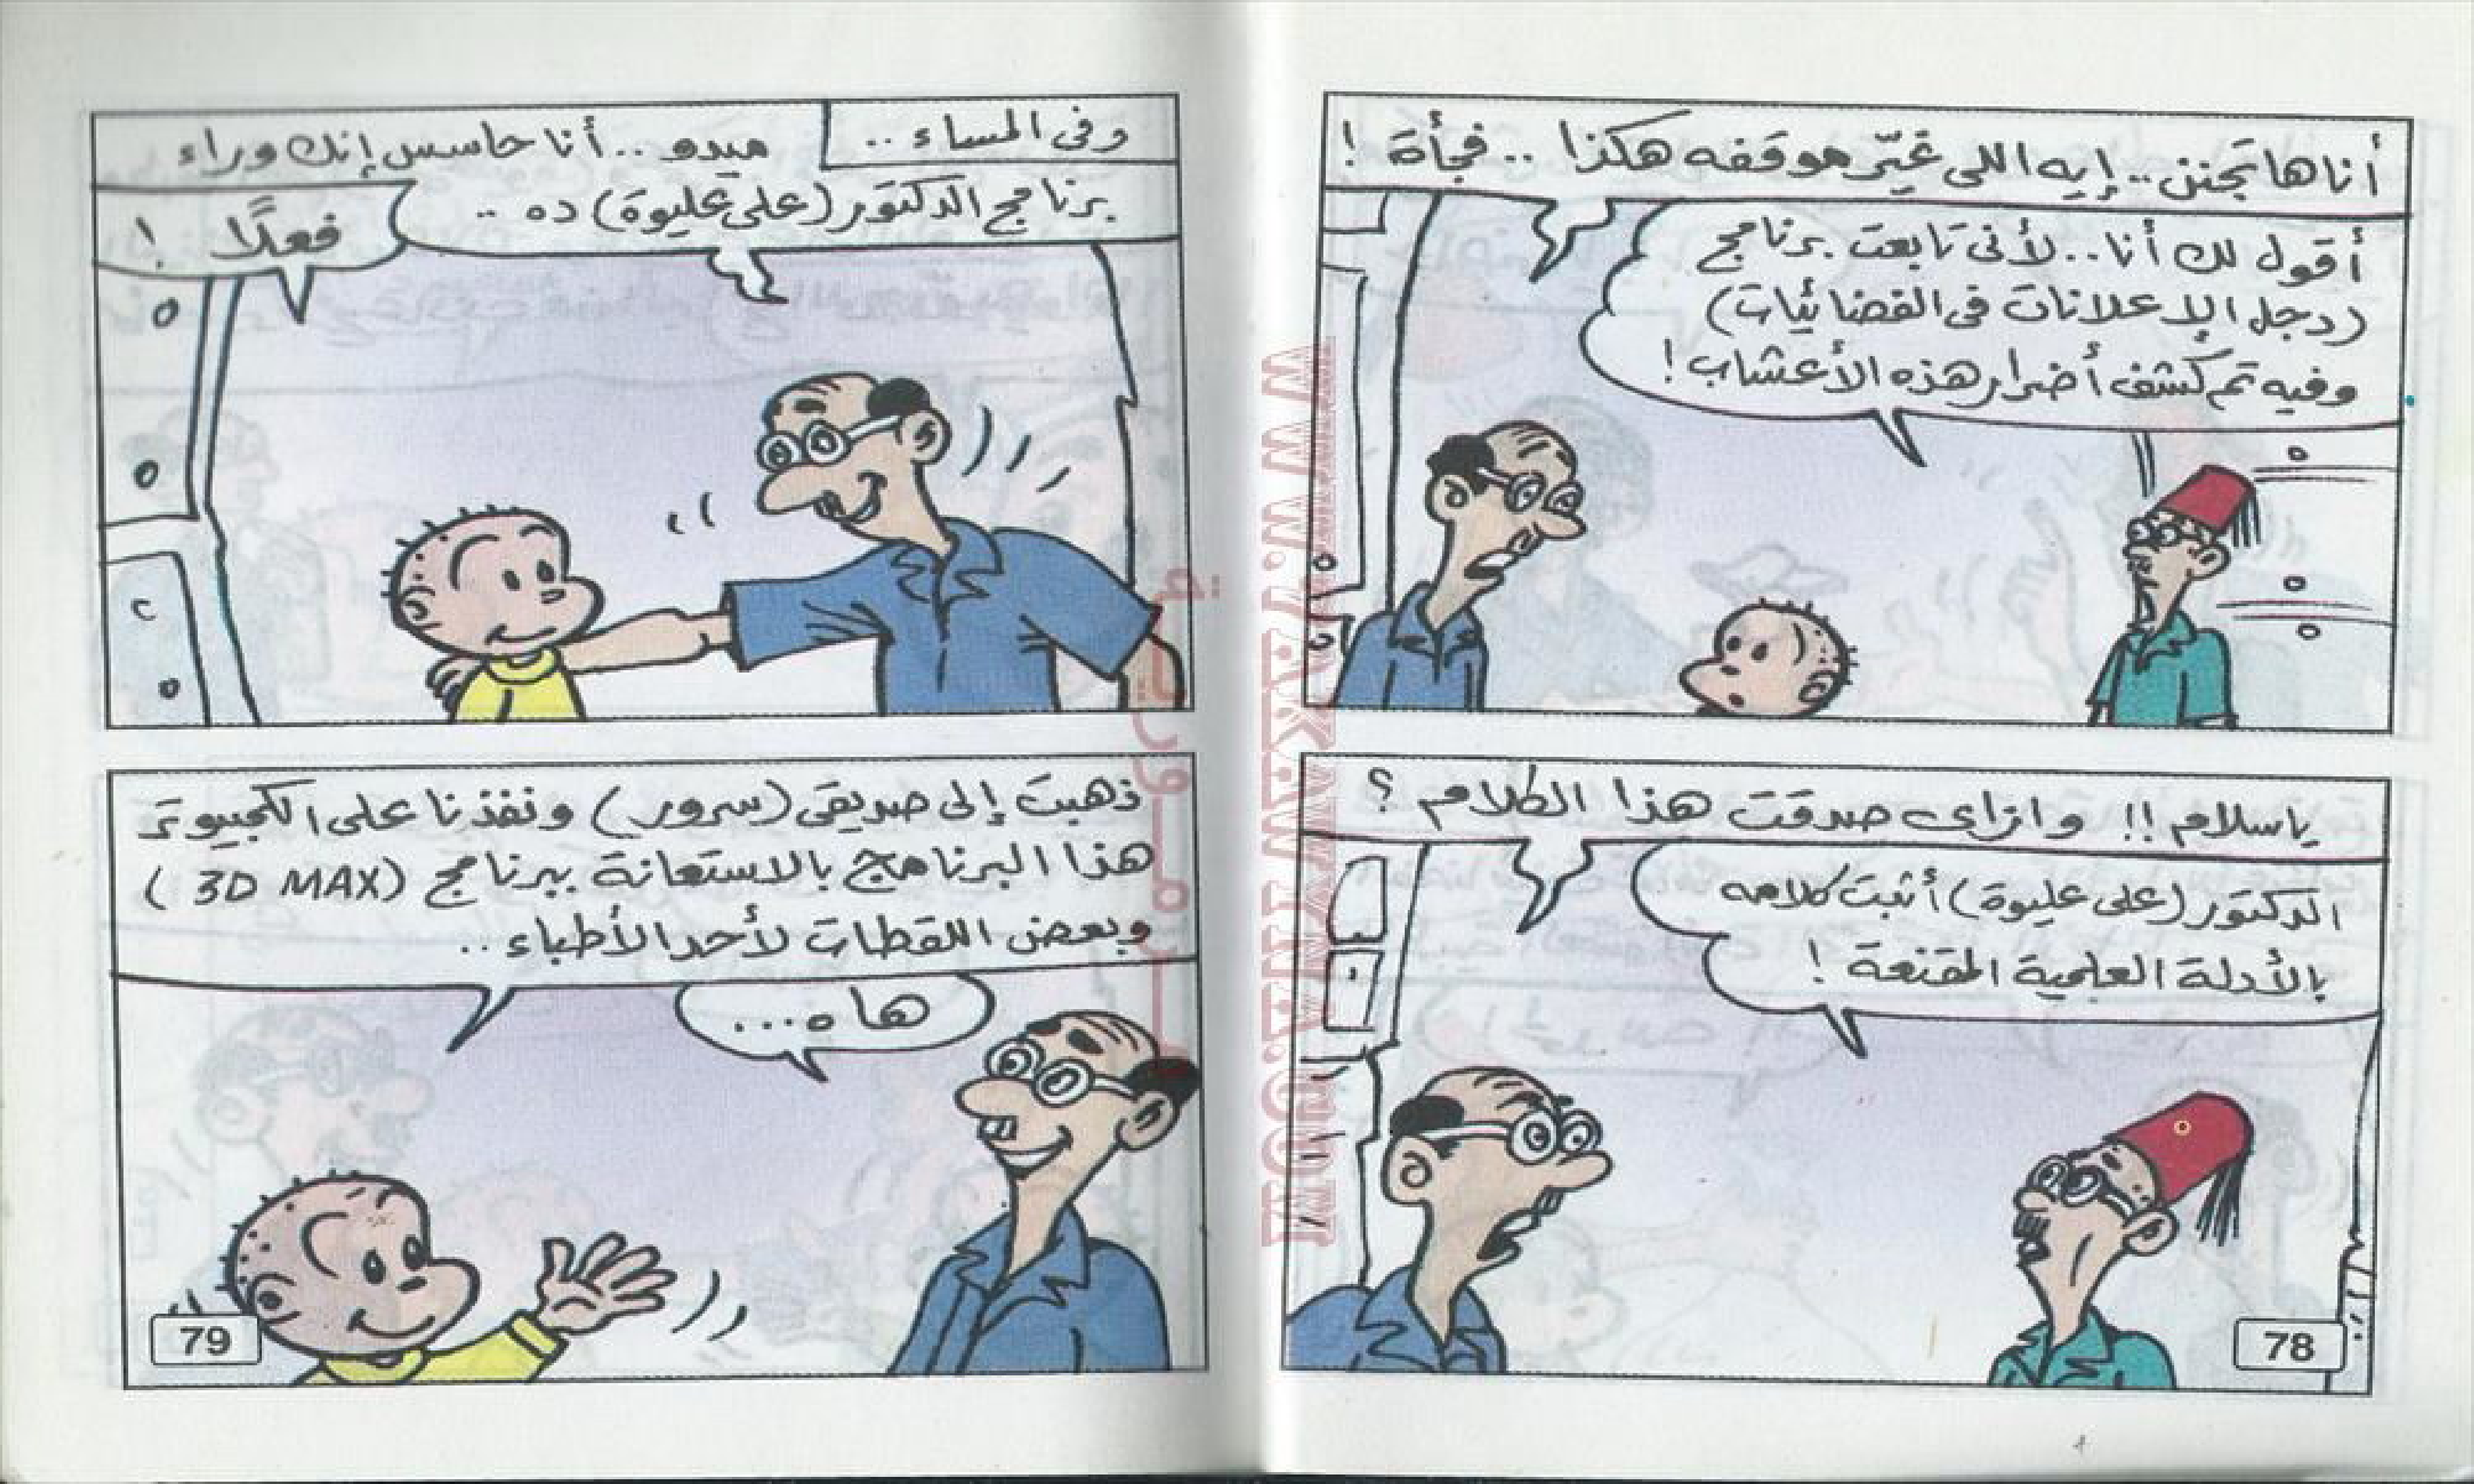 أنا هاتجنن.. إيه اللى غيّر موقفه هكذا .. فجأة !
أقول لك أنا.. لأنى تابعت برنامج
(دجل الإعلانات فى الفضائيات)
وفيه تم كشف أضرار هذه الأعشاب!
ياسلام !! وازاى صدقت هذا الكلام ؟
الدكتور (على عليوة) أثبت كلامه
بالأدلة العلمية المقنعة !
78
وفى المساء ..
ميدو .. أنا حاسس إنك وراء
برنامج الدكتور (على عليوة) ده ..
فعلًا !
ذهبت إلى صديقى (سرور) ونفذنا على الكمبيوتر
هذا البرنامج بالاستعانة ببرنامج (3D MAX)
وبعض اللقطات لأحد الأطباء ..
هاه...
79